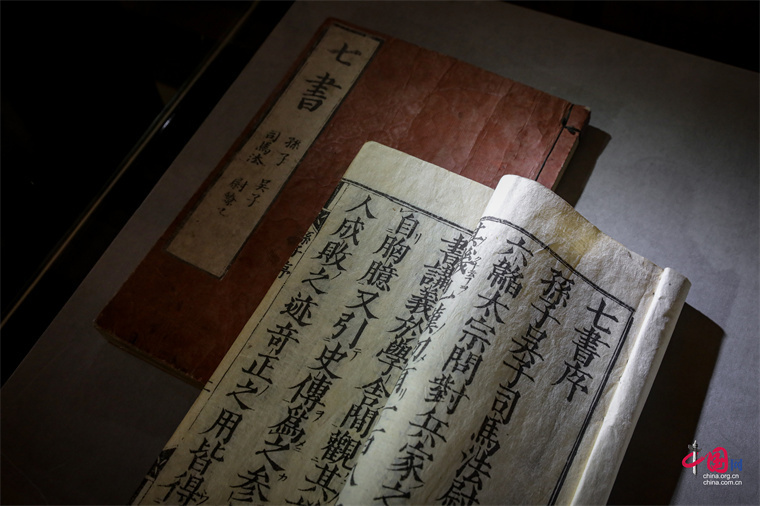 七書
孫子 吳子
司馬法 尉繚子
七書序
孫子吳子司馬法尉
六韜太宗問對兵家之
書講義於學舍閒觀其
自胸臆又引史傳爲之参
人成敗之迹奇正之用皆得
孫子序
中国网
china.org.cn
china.com.cn